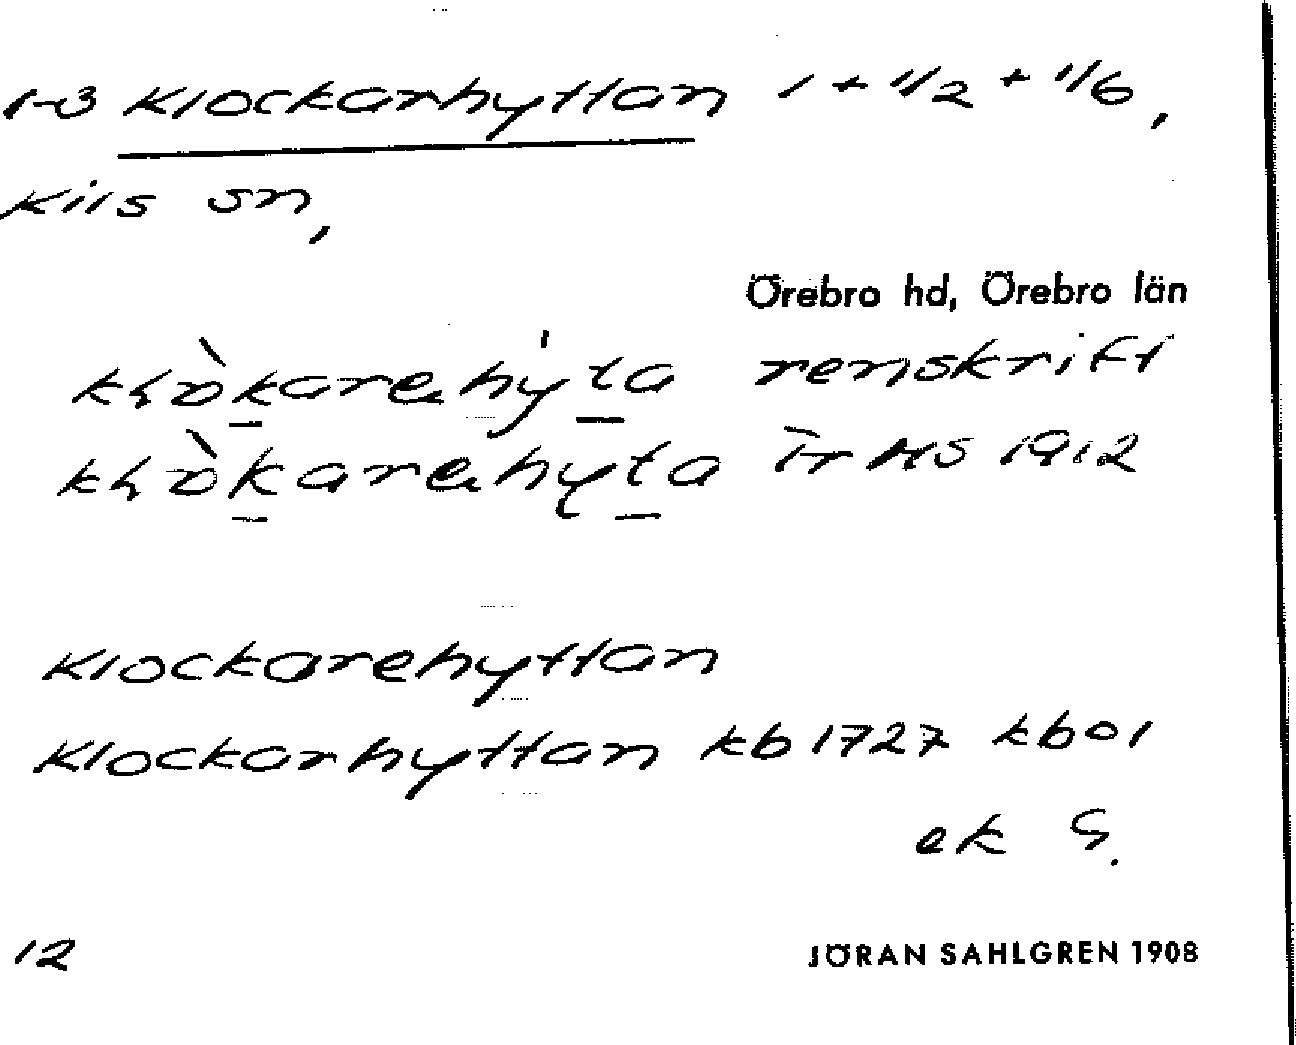 1-3 Klockarhyttan 1 + 1/2 + 1/6,
Kils sn,
Örebro hd, Örebro län
renskrift
1912
Klockarehyttan
Klockarhyttan kb 1727 kb 01
ek G.
12
JÖRAN SAHLGREN 1908